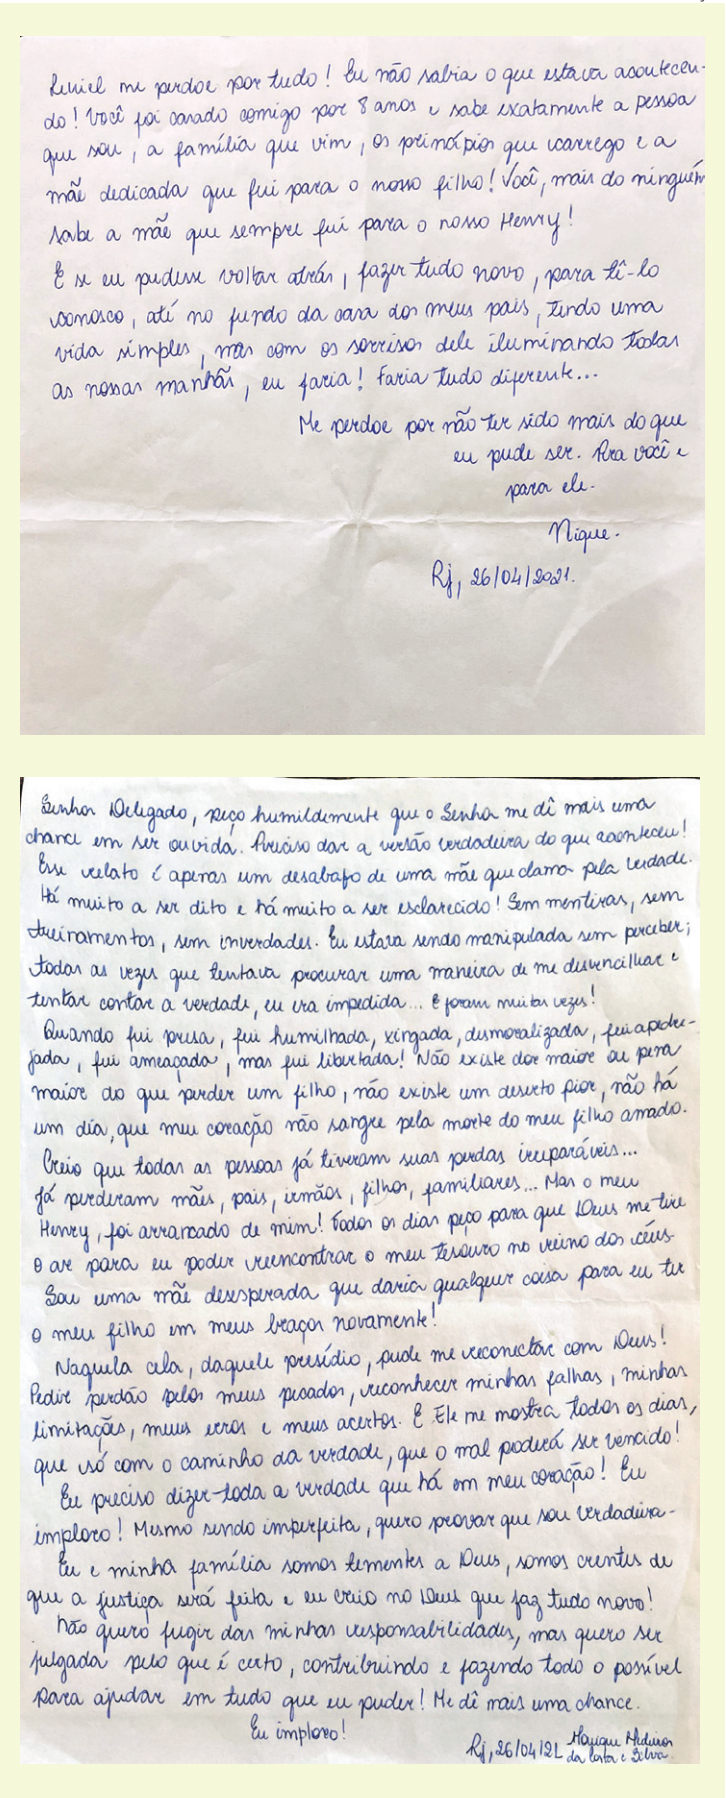 Leniel me perdoe por tudo! Eu não sabia o que estava acontecen-
do! Você foi casado comigo por 8 anos e sabe exatamente a pessoa
que sou, a família que vim, os princípios que carrego e a
mãe dedicada que fui para o nosso filho! Você, mais do ninguém
sabe a mãe que sempre fui para o nosso Henry!
E se eu pudesse voltar atrás, fazer tudo novo, para tê-lo
conosco, até no fundo da casa dos meus pais, tendo uma
vida simples, mas com os sorrisos dele iluminando todas
as nossas manhãs, eu faria! Faria tudo diferente...
Me perdoe por não ter sido mais do que
eu pude ser. Pra você e
para ele.
Nique.
Rj, 26/04/2021.
Senhor Delegado, peço humildemente que o Senhor me dê mais uma
chance em ser ouvida. Preciso dar a versão verdadeira do que aconteceu!
Esse relato é apenas um desabafo de uma mãe que clama pela verdade.
Há muito a ser dito e há muito a ser esclarecido! Sem mentiras, sem
treinamentos, sem inverdades. Eu estava sendo manipulada sem perceber;
todas as vezes que tentava procurar uma maneira de me desvencilhar e
tentar contar a verdade, eu era impedida... e foram muitas vezes!
Quando fui presa, fui humilhada, xingada, desmoralizada, fui apedre-
jada, fui ameaçada, mas fui libertada! Não existe dor maior ou pena
maior do que perder um filho, não existe um deserto pior, não há
um dia, que meu coração não sangre pela morte do meu filho amado.
Creio que todas as pessoas já tiveram suas perdas irreparáveis...
Já perderam mães, pais, irmãos, filhos, familiares... Mas o meu
Henry, foi arrancado de mim! Todos os dias peço para que Deus me tire
o ar para eu poder reencontrar o meu tesouro no reino dos céus.
Sou uma mãe desesperada que daria qualquer coisa para eu ter
o meu filho em meus braços novamente!
Naquela cela, daquele presídio, pude me reconectar com Deus!
Pedir perdão pelos meus pecados, reconhecer minhas falhas, minhas
limitações, meus erros e meus acertos. E Ele me mostra todos os dias,
que só com o caminho da verdade, que o mal poderá ser vencido!
Eu preciso dizer toda a verdade que há em meu coração! Eu
imploro! Mesmo sendo imperfeita, quero provar que sou verdadeira.
Eu e minha família somos tementes a Deus, somos crentes de
que a justiça será feita e eu creio no Deus que faz tudo novo!
Não quero fugir das minhas responsabilidades, mas quero ser
julgada pelo que é certo, contribuindo e fazendo todo o possível
para ajudar em tudo que eu puder! Me dê mais uma chance.
Eu imploro!
Rj, 26/04/21 Monique Medeiros
da Costa e Silva